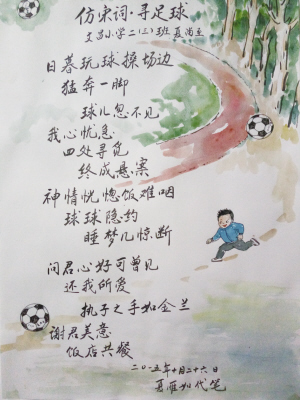 仿宋词·寻足球
文昌小学二(三)班 夏尚立
日暮玩球操场边
猛奔一脚
球儿忽不见
我心忧急
四处寻觅
终成悬案
神情恍惚饭难咽
球球隐约
睡梦儿惊断
问君心好可曾见
还我所爱
执子之手如金兰
谢君美意
饭店共餐
二〇一五年十月二十六日
夏雁如代笔